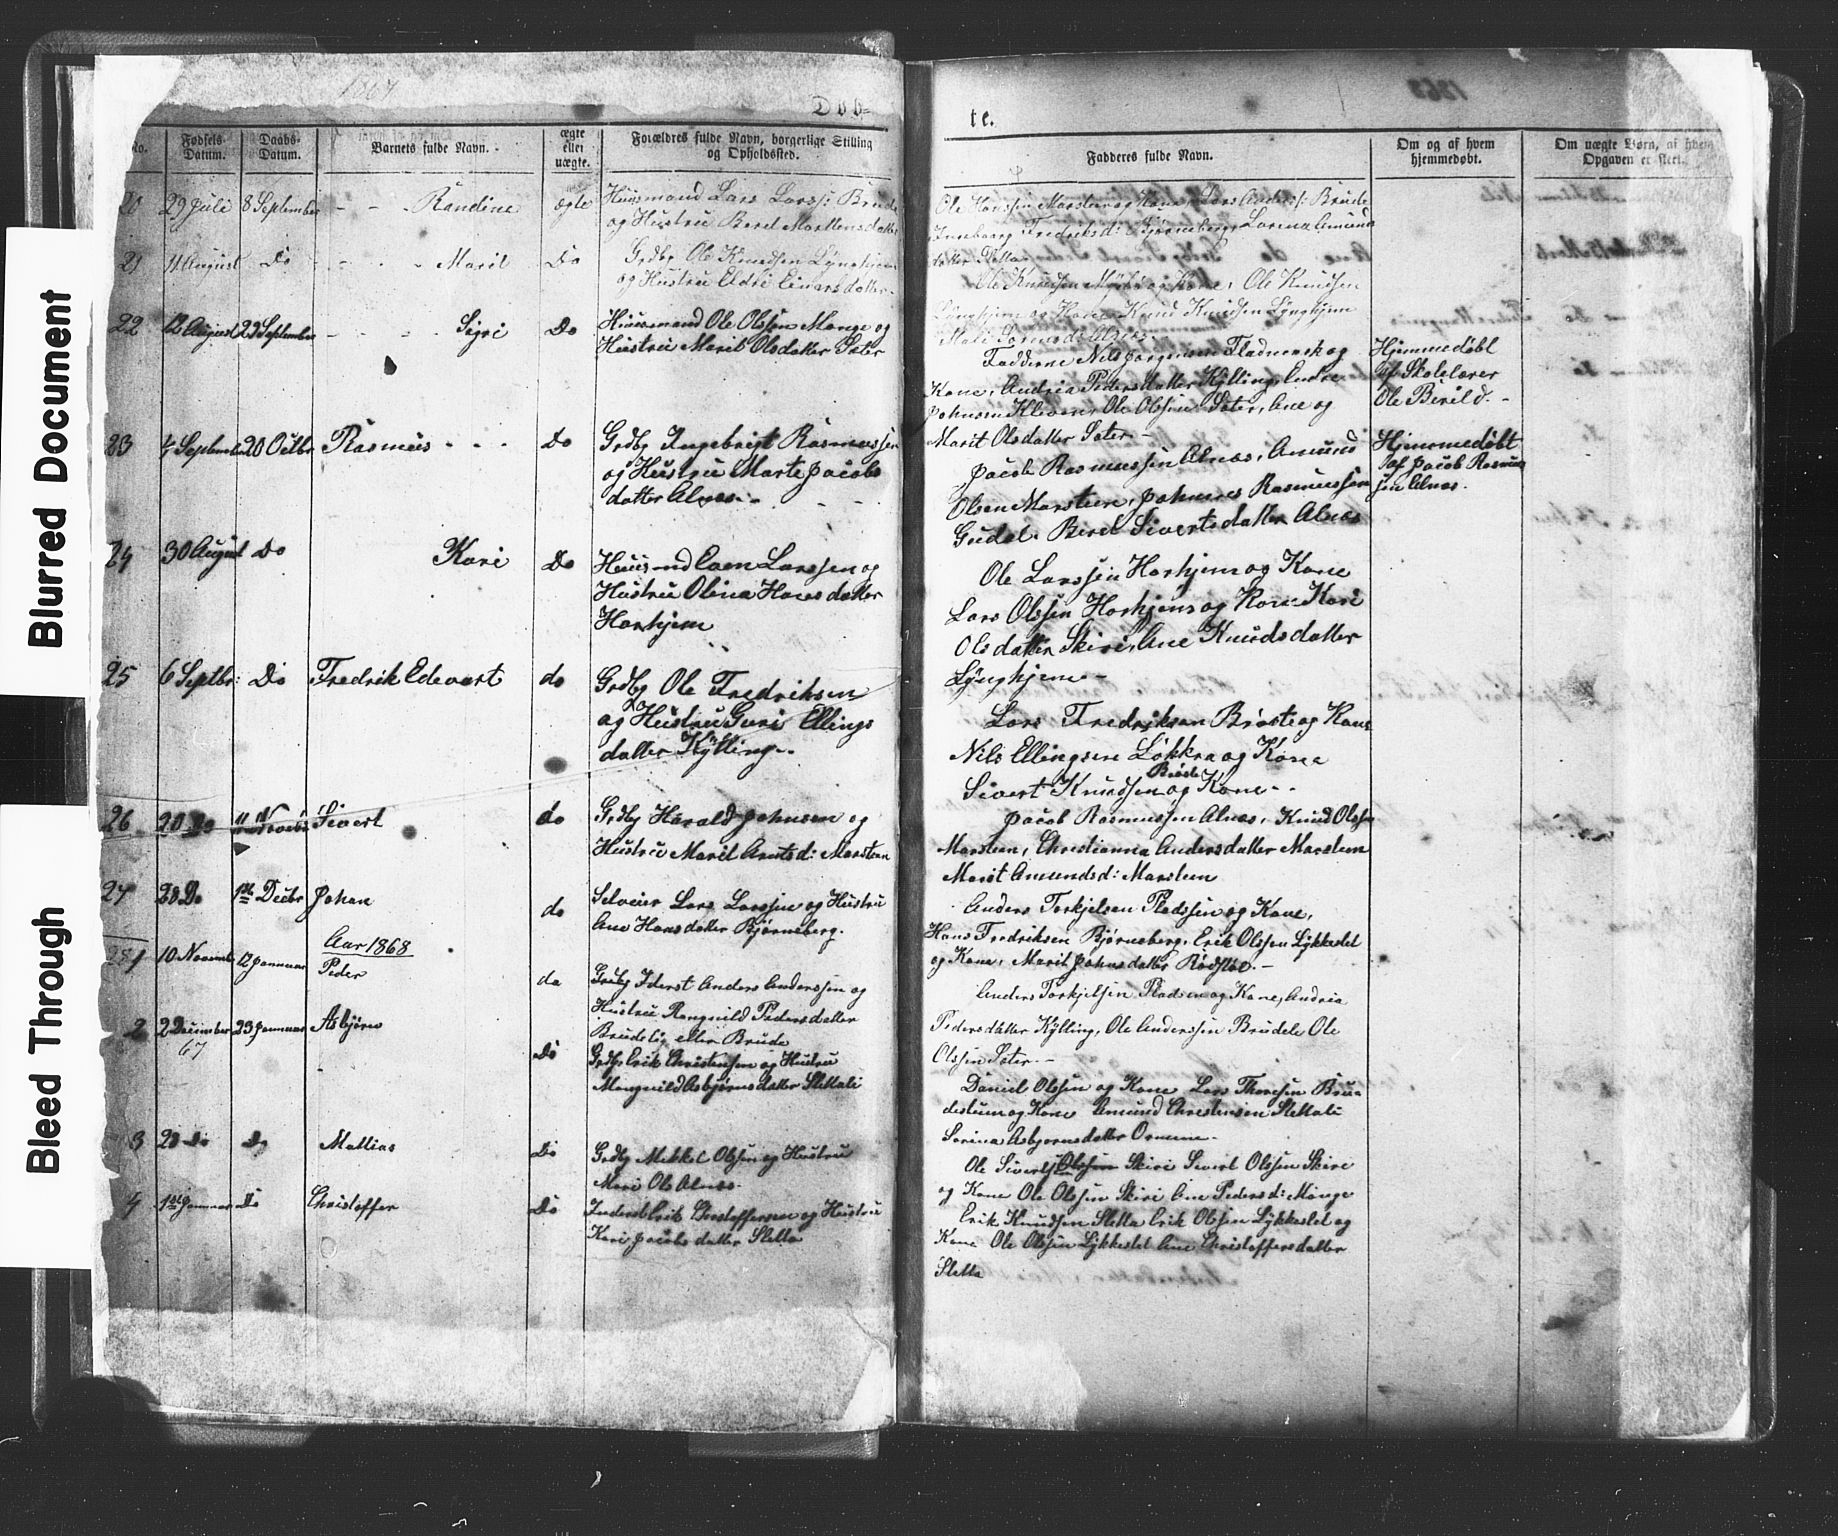 Blurred Document
Bleed Through
1867
Døb=
te.
No.
Fødsels-Datum.
Daabs-Datum.
Barnets fulde Navn.
ægte eller uægte.
Forældres fulde Navn, borgerlige Stilling og Opholdssted.
Fadderes fulde Navn.
Om og af hvem hjemmedøbt.
Om uægte Børn, af hvem Opgaven er skeet.
20 29 Juli 8 September - - Randine ægte Huusmand Lars Larss: Brude
og Hustru Berit Mortensdatter
Ole Hanssen Marstein og Kone, Lars Anders: Brude
Ingeborg Fredriksd: Bjørneberg, Lorina Amunds
datter
21 11 August Do - - - Marit Do Grdbg Ole Knudsen Lynghjem
og Hustru Eldri Einarsdatter
Ole Knudsen og Kone, Ole Knudsen
Lynghjem og Kone Knud Knudsen Lynghjem
22 12 August 29 September - - - Sigri Do Huusmand Ole Olssen Monge og
Hustru Marit Olsdatter Sæter
Fadderne Nils Jørgensen Fladmark og
Kone, Andria Pedersdatter Kylling, Endre
Johnsen Kleven, Ole Olssen Sæter, Ane og
Marit Olsdatter Sæter
Hjemmedøbt
af Skolelærer
Ole Berild.
23 4 September 20 Octbr Rasmus - - - Do Grdbg Ingebrigt Rasmussen
og Hustru Marte Jacobs
datter Alnæs
Jacob Rasmussen Alnæs, Amund
Olsen Marstein, Johannes Rasmussen
Gudal. Berit Sivertsdatter Alnæs
Hjemmedøbt
af Jacob Rasmus
sen Alnæs.
24 30 August Do Kari Do Huusmd Even Larssen og
Hustru Olina Hansdatter
Horhjem
Ole Larssen Horhjem og Kone
Lars Olssen Horhjem og Kone Kari
Olsdatter Skiri, Ane Knudsdatter
Lynghjem
25 6 Septbr: Do Fredrik Edevart do Grdbg Ole Fredriksen
og Hustru Guri Ellings
datter Kylling
Lars Fredriksen Brøste og Kone
Nils Ellingsen Løkkra og Kone
Brøste
Sivert Knudssen og Kone
26 20 Do 11 Novbr Sivert do Grdbg Harald Johnsen og
Hustru Marit Arntsd: Marstein
Jacob Rasmussen Alnæs, Knud Olssen
Marstein, Christianna Andersdatter Marstein
Marit Amundsd: Marstein
27 28 Do 1ste Decbr Johan do Selveier Lars Larssen og Hustru
Ane Hansdatter Bjørneberg.
Anders Torkjelsen Pladssen og Kone,
Hans Fredriksen Bjørneberg, Erik Olssen Lykkeslet
og Kone, Marit Johnsdatter Rødstøl.
Aar 1868
1 10 Novemb 12 Januar Peder do Grdbg Iderst Anders Anderssen og
Hustru Rangnild Pedersdatter
Brudelig eller Brude
Anders Torkjelsen Pladsen og Kone, Andria
Pedersdatter Kylling, Ole Anderssen Brudele Ole
Olssen Sæter
2 2 December 23 Januar Asbjørn Do Grdbg Erik Christensen og Hustru
67
Mangnild Asbjørnsdatter Slettali
Daniel Olssen og Kone Lars Thoresen Bru-
destuen og Kone Amund Christensen Slettali
Sorina Asbjørnsdatter Ormem
3 28 Do Do Mattias Do Grdbg Mikkel Olssen og Hustru
Mari Ols Alnæs
Ole Sivertsen Olssen Skiri Sivert Olssen Skire
og Kone Ole Olssen Skiri Ane Pedersd: Monge
4 1ste Januar Do Christoffer Do Inderst Erik Christoffersen og Hustru
Kari Jacobsdatter Sletta
Erik Knudsen Sletta Erik Olssen Lykkeslet og
Kone Ole Olssen Lykkeslet Ane Christoffersdatter
Sletta